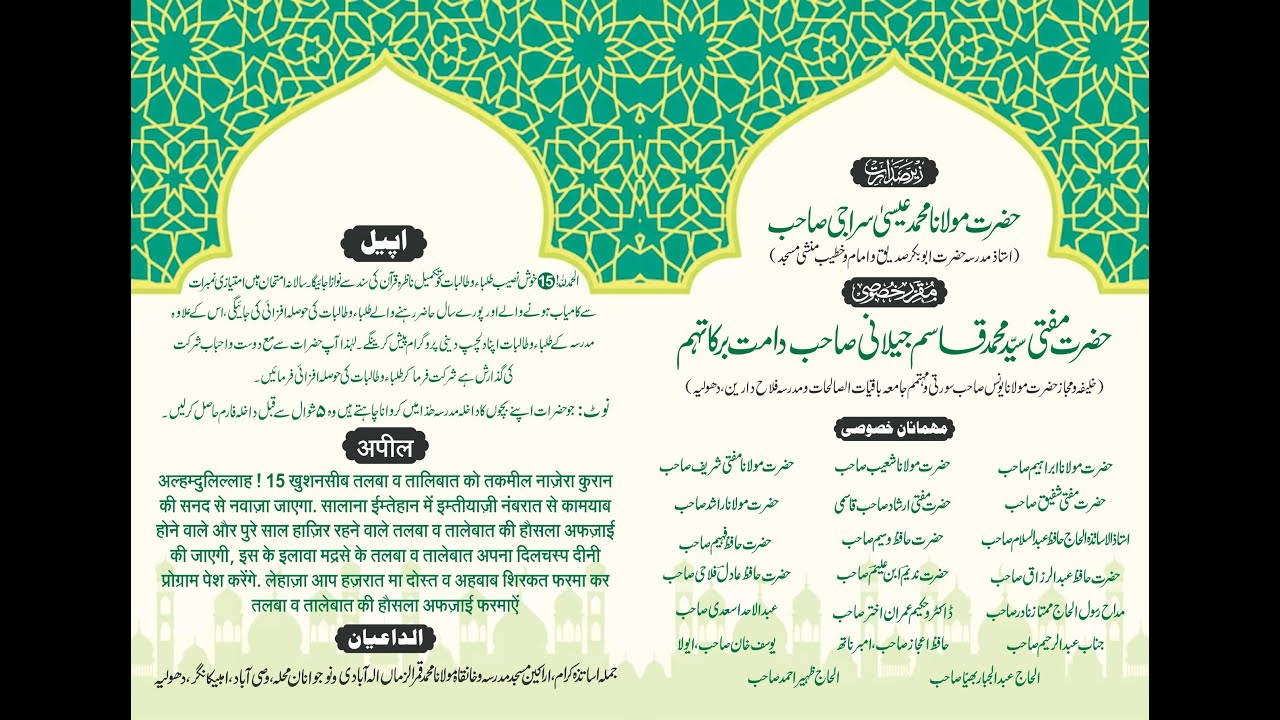 زیر صدارت
حضرت مولانا محمد عیسیٰ سراجی صاحب
(استاذ مدرسہ حضرت ابوبکر صدیق و امام و خطیب منشی مسجد)
مقرر خصوصی
حضرت مفتی سیّد محمد قاسم جیلانی صاحب دامت برکاتہم
(خلیفہ و مجاز حضرت مولانا یونس صاحب سورتی و مہتمم جامعہ باقیات الصالحات و مدرسہ فلاح دارین، دھولیہ)
مہمانان خصوصی
حضرت مولانا ابراہیم صاحب حضرت مولانا شعیب صاحب حضرت مولانا مفتی شریف صاحب
حضرت مفتی شفیق صاحب حضرت مفتی ارشاد صاحب قاسمی حضرت مولانا راشد صاحب
استاذ الاساتذہ الحاج حافظ عبدالسلام صاحب حضرت حافظ وسیم صاحب حضرت حافظ فہیم صاحب
حضرت حافظ عبدالرزاق صاحب حضرت ندیم ابن علیم صاحب حضرت حافظ عادل فلاحی صاحب
مداح رسول الحاج ممتاز نادر صاحب ڈاکٹر و حکیم عمران اختر صاحب عبدالاحد اسعدی صاحب
جناب عبدالرحیم صاحب حافظ اعجاز صاحب، امبر ناتھ یوسف خان صاحب، ایولا
الحاج عبدالجبار بھیّا صاحب الحاج ظہیر احمد صاحب
اپیل
الحمدللہ! 15 خوش نصیب طلباء و طالبات کو تکمیل ناظرہ قرآن کی سند سے نوازا جائیگا۔ سالانہ امتحان میں امتیازی نمبرات
سے کامیاب ہونے والے اور پورے سال حاضر رہنے والے طلباء و طالبات کی حوصلہ افزائی کی جائیگی، اس کے علاوہ
مدرسہ کے طلباء و طالبات اپنا دلچسپ دینی پروگرام پیش کرینگے۔ لہٰذا آپ حضرات سے مع دوست و احباب شرکت
کی گذارش ہے شرکت فرما کر طلباء و طالبات کی حوصلہ افزائی فرمائیں۔
نوٹ: جو حضرات اپنے بچوں کا داخلہ مدرسہ ھٰذا میں کروانا چاہتے ہیں وہ ۵ شوال سے قبل داخلہ فارم حاصل کرلیں۔
अपील
अल्हम्दुलिल्लाह ! 15 खुशनसीब तलबा व तालिबात को तकमील नाज़ेरा कुरान
की सनद से नवाज़ा जाएगा. सालाना ईम्तेहान में इम्तीयाज़ी नंबरात से कामयाब
होने वाले और पुरे साल हाज़िर रहने वाले तलबा व तालेबात की हौसला अफज़ाई
की जाएगी, इस के इलावा मद्रसे के तलबा व तालेबात अपना दिलचस्प दीनी
प्रोग्राम पेश करेंगे. लेहाज़ा आप हज़रात मा दोस्त व अहबाब शिरकत फरमा कर
तलबा व तालेबात की हौसला अफज़ाई फरमाऐं
الداعیان
جملہ اساتذہ کرام، اراکین مسجد مدرسہ و خانقاہ مولانا محمد قمر الزماں الہ آبادی و نوجوانان محلہ، وصی آباد، امبیکا نگر، دھولیہ